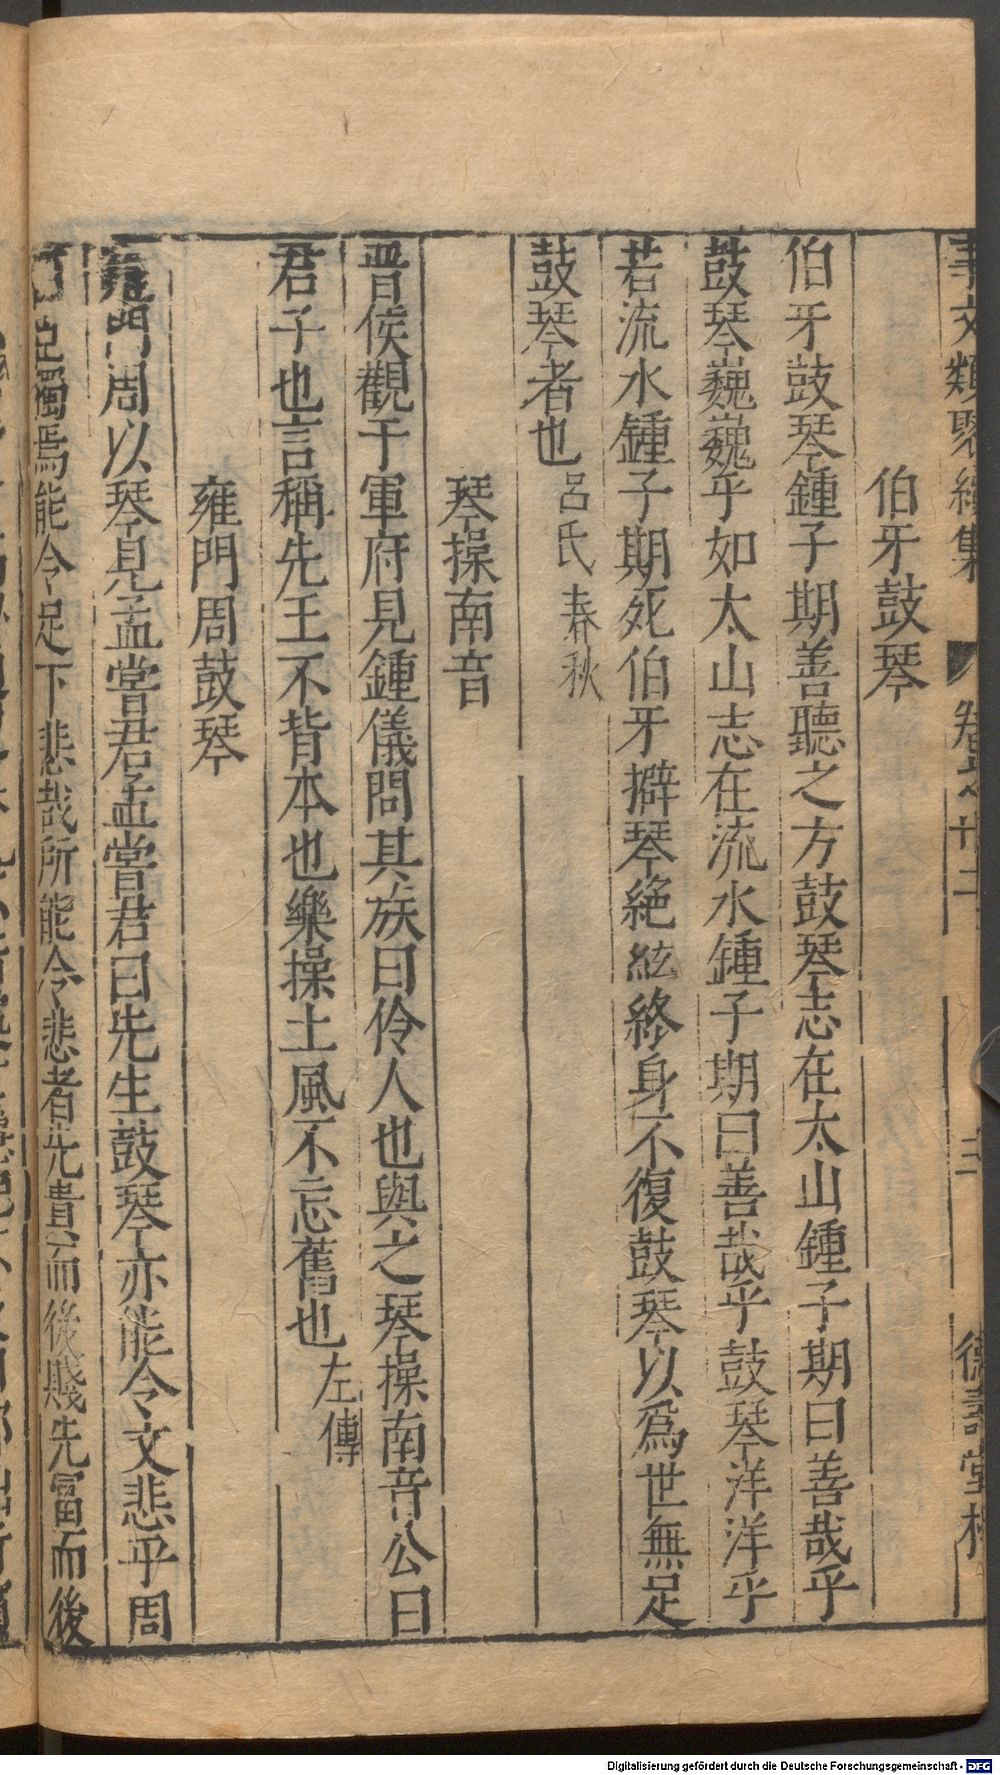 事文類聚續集 卷之廿二 三 德壽堂梓
伯牙鼓琴
伯牙鼓琴鍾子期善聽之方鼓琴志在太山鍾子期曰善哉乎
鼓琴巍巍乎如太山志在流水鍾子期曰善哉乎鼓琴洋洋乎
若流水鍾子期死伯牙擗琴絕絃終身不復鼓琴以爲世無足
鼓琴者也呂氏春秋
琴操南音
晋侯觀于軍府見鍾儀問其族曰伶人也與之琴操南音公曰
君子也言稱先王不背本也樂操土風不忘舊也左傳
雍門周鼓琴
雍門周以琴見孟嘗君孟嘗君曰先生鼓琴亦能令文悲乎周
曰臣獨焉能令足下悲哉所能令悲者先貴而後賤先富而後
Digitalisierung gefördert durch die Deutsche Forschungsgemeinschaft - DFG